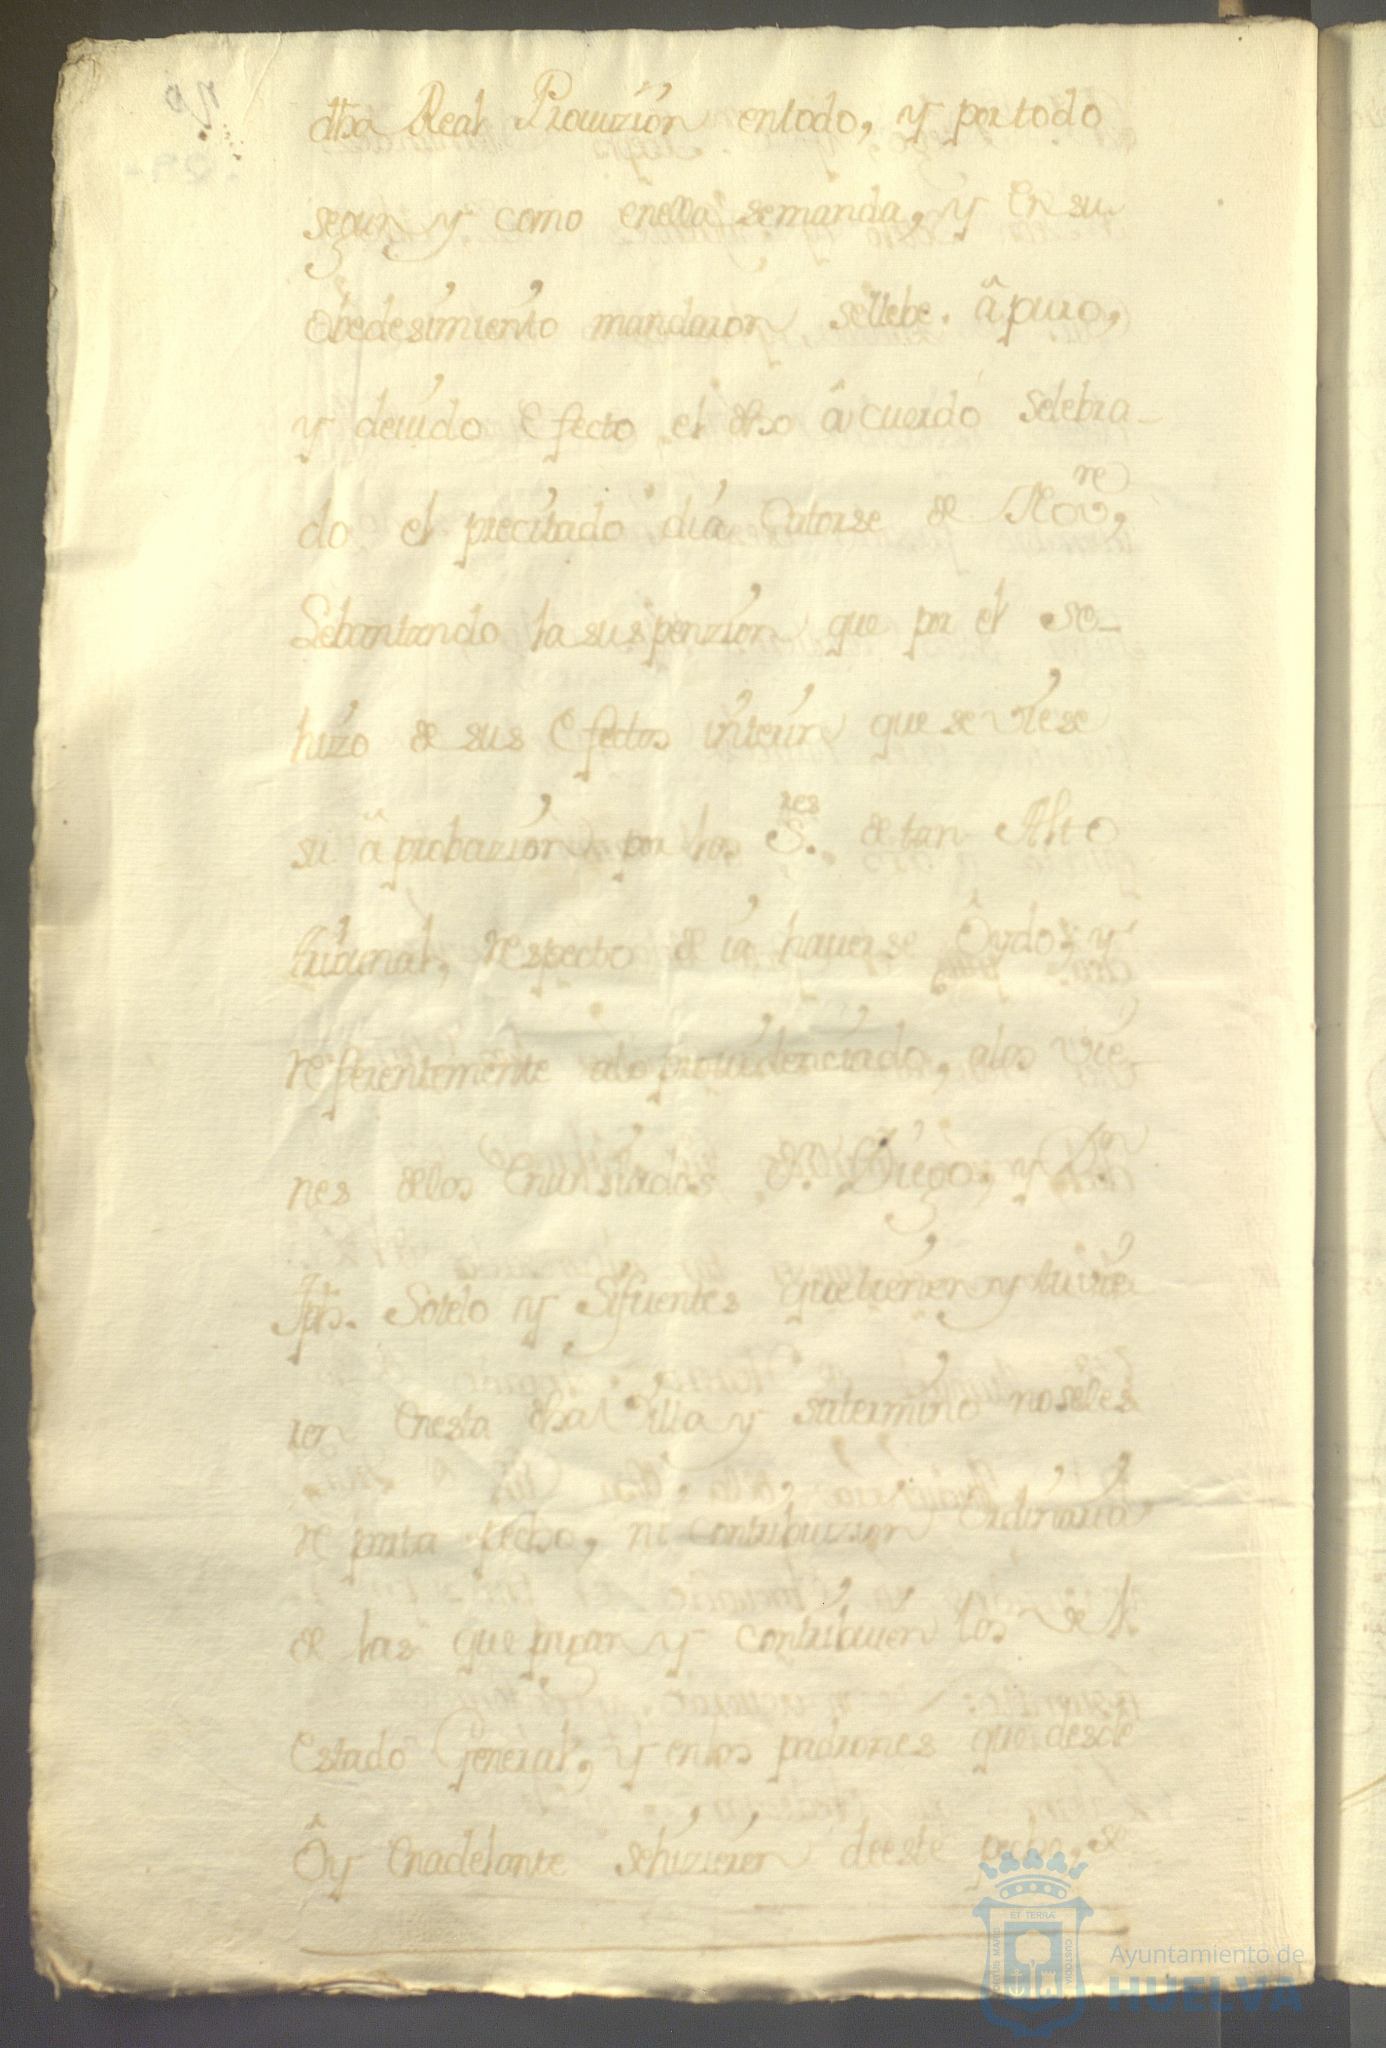 dha Real Provizion entodo, y por todo
segun y como enella semanda, y en su
obedesimiento mandaron sellebe. â puro,
y devido efecto el dho âcuerdo selebra-
do el precitado dia catorse de Nov.re,
Lebantando la suspenzion que por el se-
hizo de sus efectos interin que se viese
su âprobazion por los S.res de tan Alto
tribunal, respecto de ia haverse Ôydo, y
referentemente alo providenciado, alos vie-
nes delos enunsiados D.n Diego, y D.n
Jph. Sotelo y Sifuentes que tienen y tuvie
ren enesta dha Villa y sutermino noseles
reparta pecho, ni contribuzion ordinaria
de las que pagan y contribuien los del
Estado General, y enlos padrones que desde
Ôy enadelante sehizieren deeste pecho, se
Ayuntamiento de
HUELVA